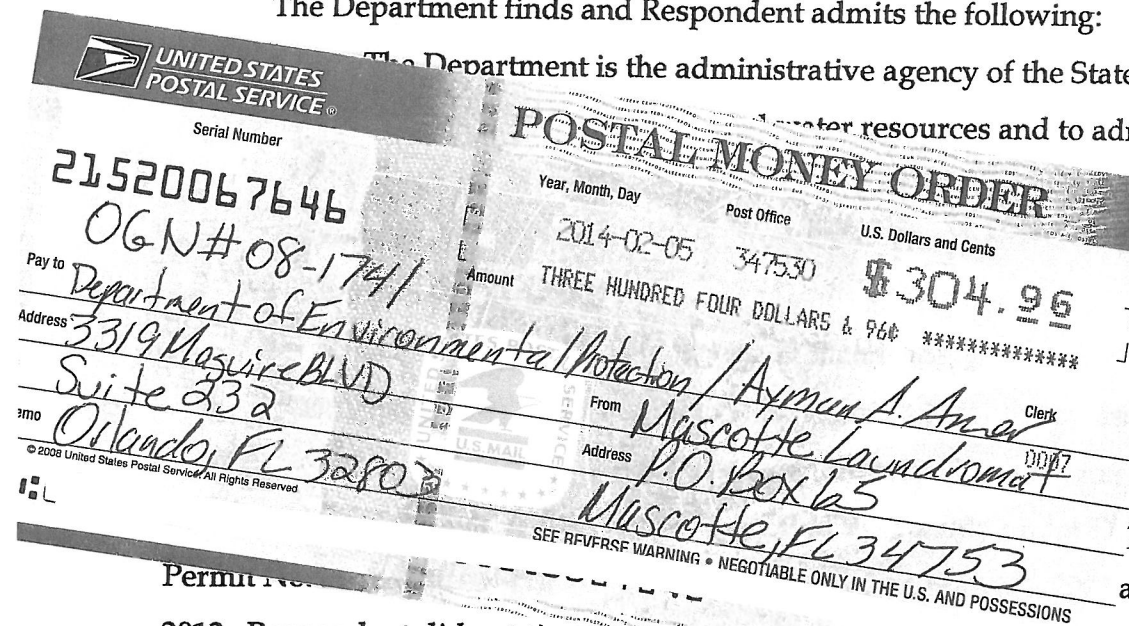 The Department finds and Respondent admits the following:
The Department is the administrative agency of the State
water resources and to ad
UNITED STATES
POSTAL SERVICE®
POSTAL MONEY ORDER
Serial Number
21520067646
OGN# 08-1741
Year, Month, Day
Post Office
U.S. Dollars and Cents
2014-02-05
347530
$304.96
Amount
THREE HUNDRED FOUR DOLLARS & 96¢ **************
Pay to
Department of Environmental Protection / Ayman A. Amer
Address
3319 Maguire BLVD
Suite 232
emo
Orlando, FL 32803
From
Mascotte Laundromat
Clerk
0007
Address
P.O. Box 65
Mascotte, FL 34753
U.S. MAIL
© 2008 United States Postal Service. All Rights Reserved
SEE REVERSE WARNING • NEGOTIABLE ONLY IN THE U.S. AND POSSESSIONS
Permit